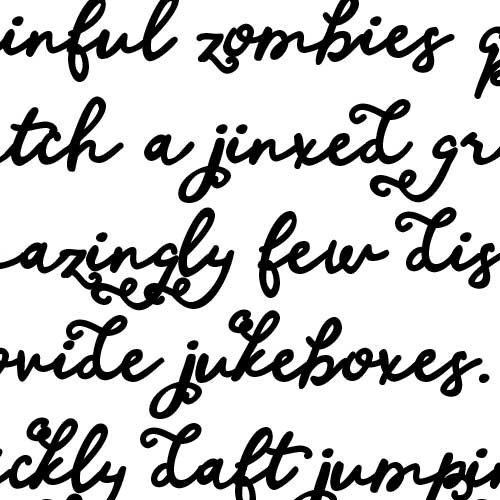 inful zombies q
tch a jinxed gr
azingly few dis
ovide jukeboxes.
ickly daft jumpi